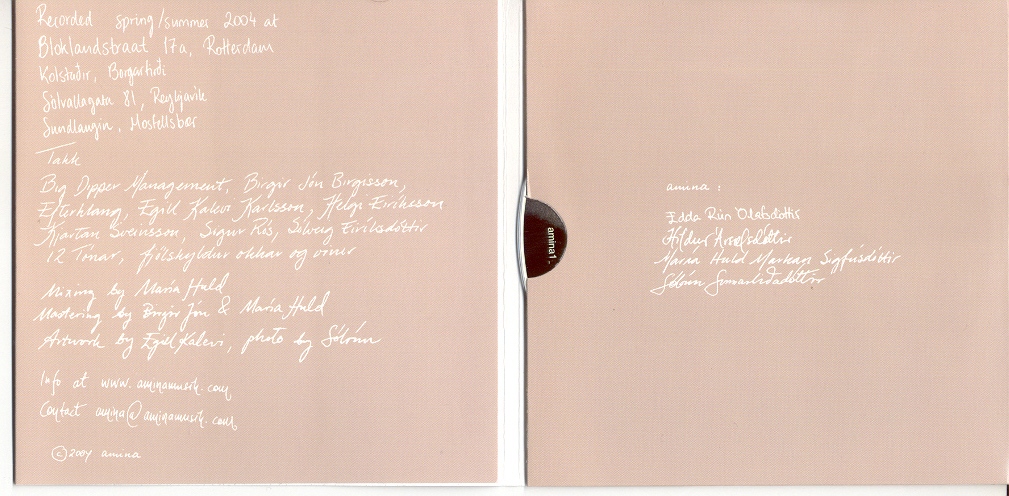 Recorded spring/summer 2004 at
Bloklandstraat 17a, Rotterdam
Kolstaðir, Borgarfirði
Sólvallagata 81, Reykjavík
Sundlaugin, Mosfellsbær
Takk
Big Dipper Management, Birgir Jón Birgisson,
Efterklang, Egill Kalevi Karlsson, Helgi Eiríksson
Kjartan Sveinsson, Sigur Rós, Sólveig Eiríksdóttir
12 Tónar, fjölskyldur okkar og vinir
Mixing by María Huld
Mastering by Birgir Jón & María Huld
Artwork by Egill Kalevi, photo by Sólrún
Info at www.aminamusik.com
Contact amina@aminamusik.com
©2004 amina
amina1
amina:
Edda Rún Ólafsdóttir
Hildur Ársælsdóttir
María Huld Markan Sigfúsdóttir
Sólrún Sumarliðadóttir